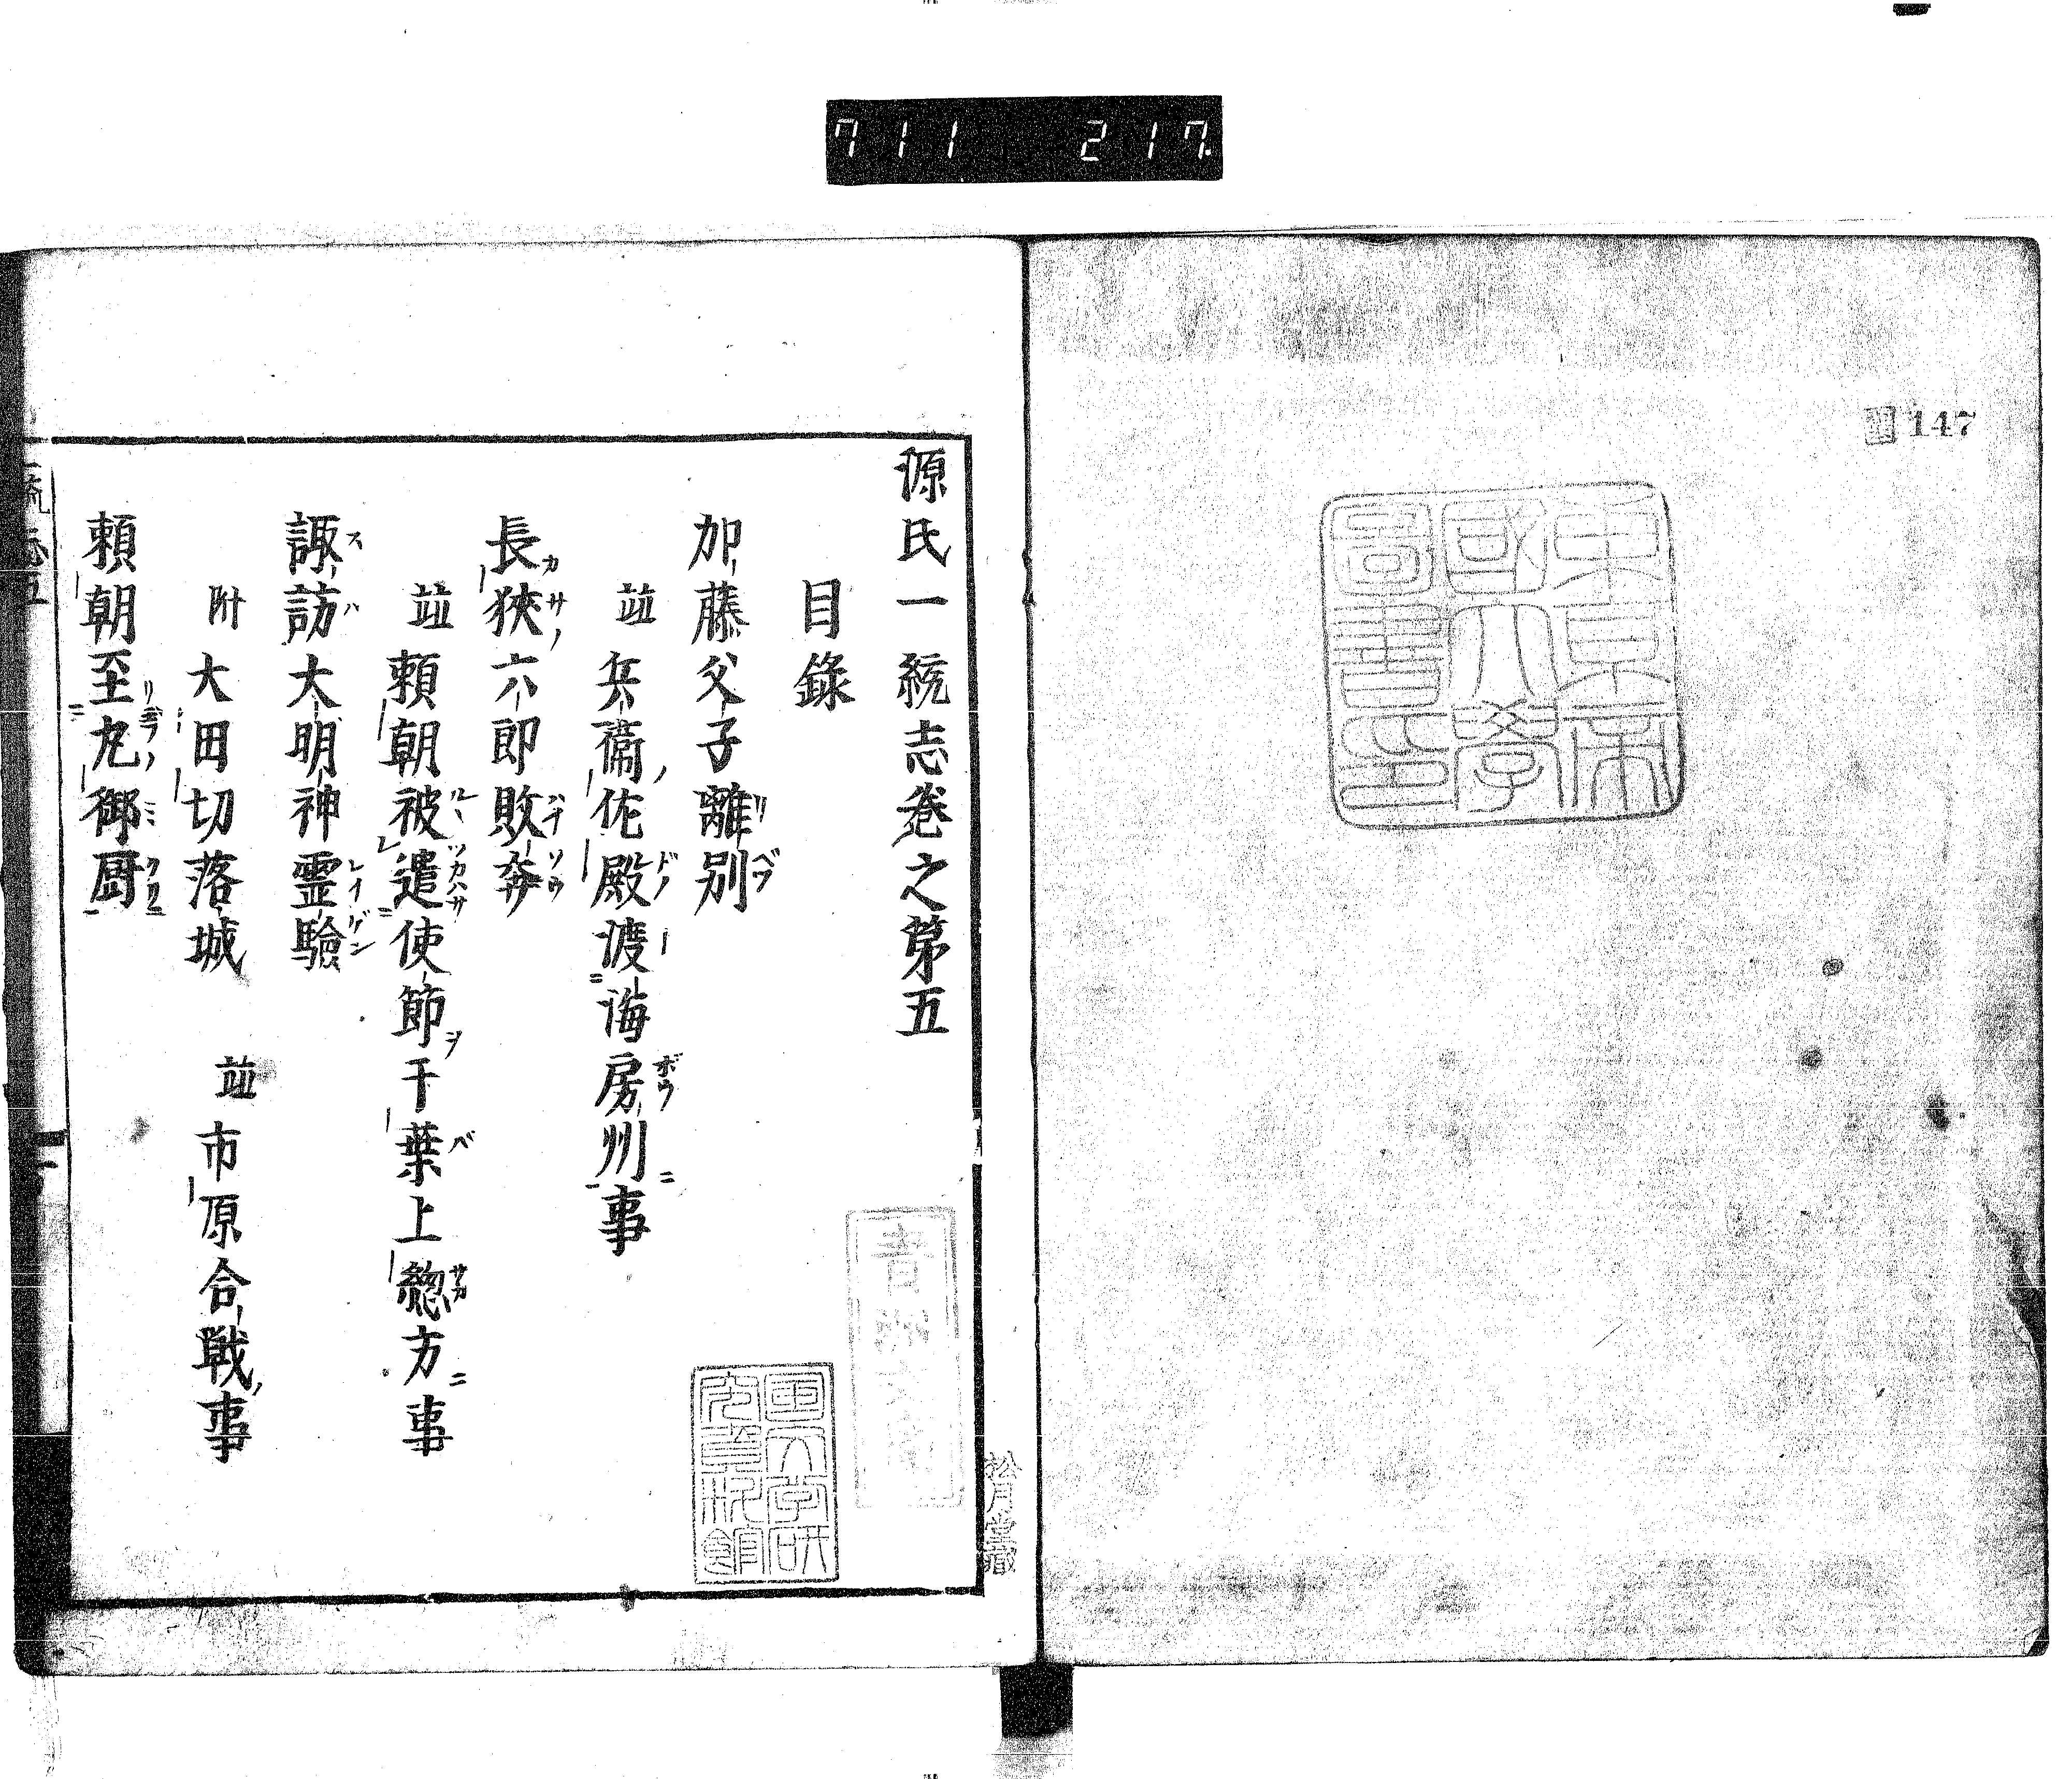 711 217
147
東京帝
國大學
圖書印
松月堂藏
源氏一統志巻之第五
目録
加藤父子離別
並兵衞佐殿渡海房州事
長狹六郎敗奔
並頼朝被遣使節千葉上總方事
諏訪大明神霊驗
附大田切落城 並市原合戦事
頼朝至丸御厨
国文学研
究資料館